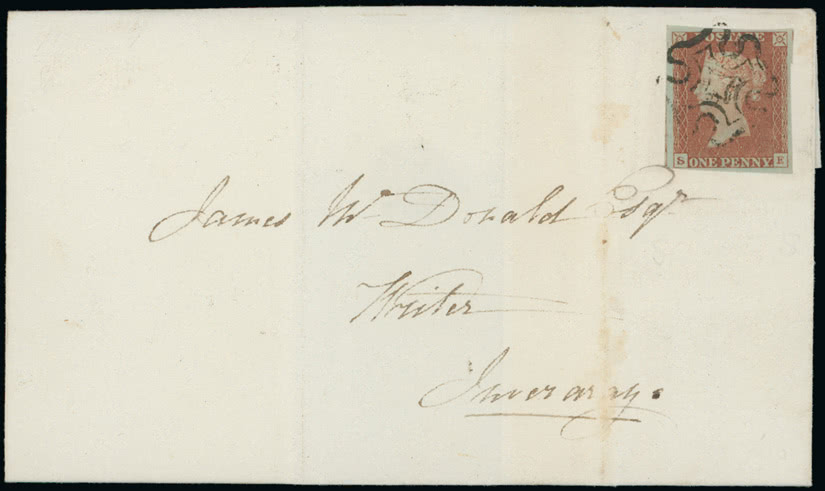 POSTAGE
S ONE PENNY E
James Mc Donald Esqr
Writer
Inveraray.